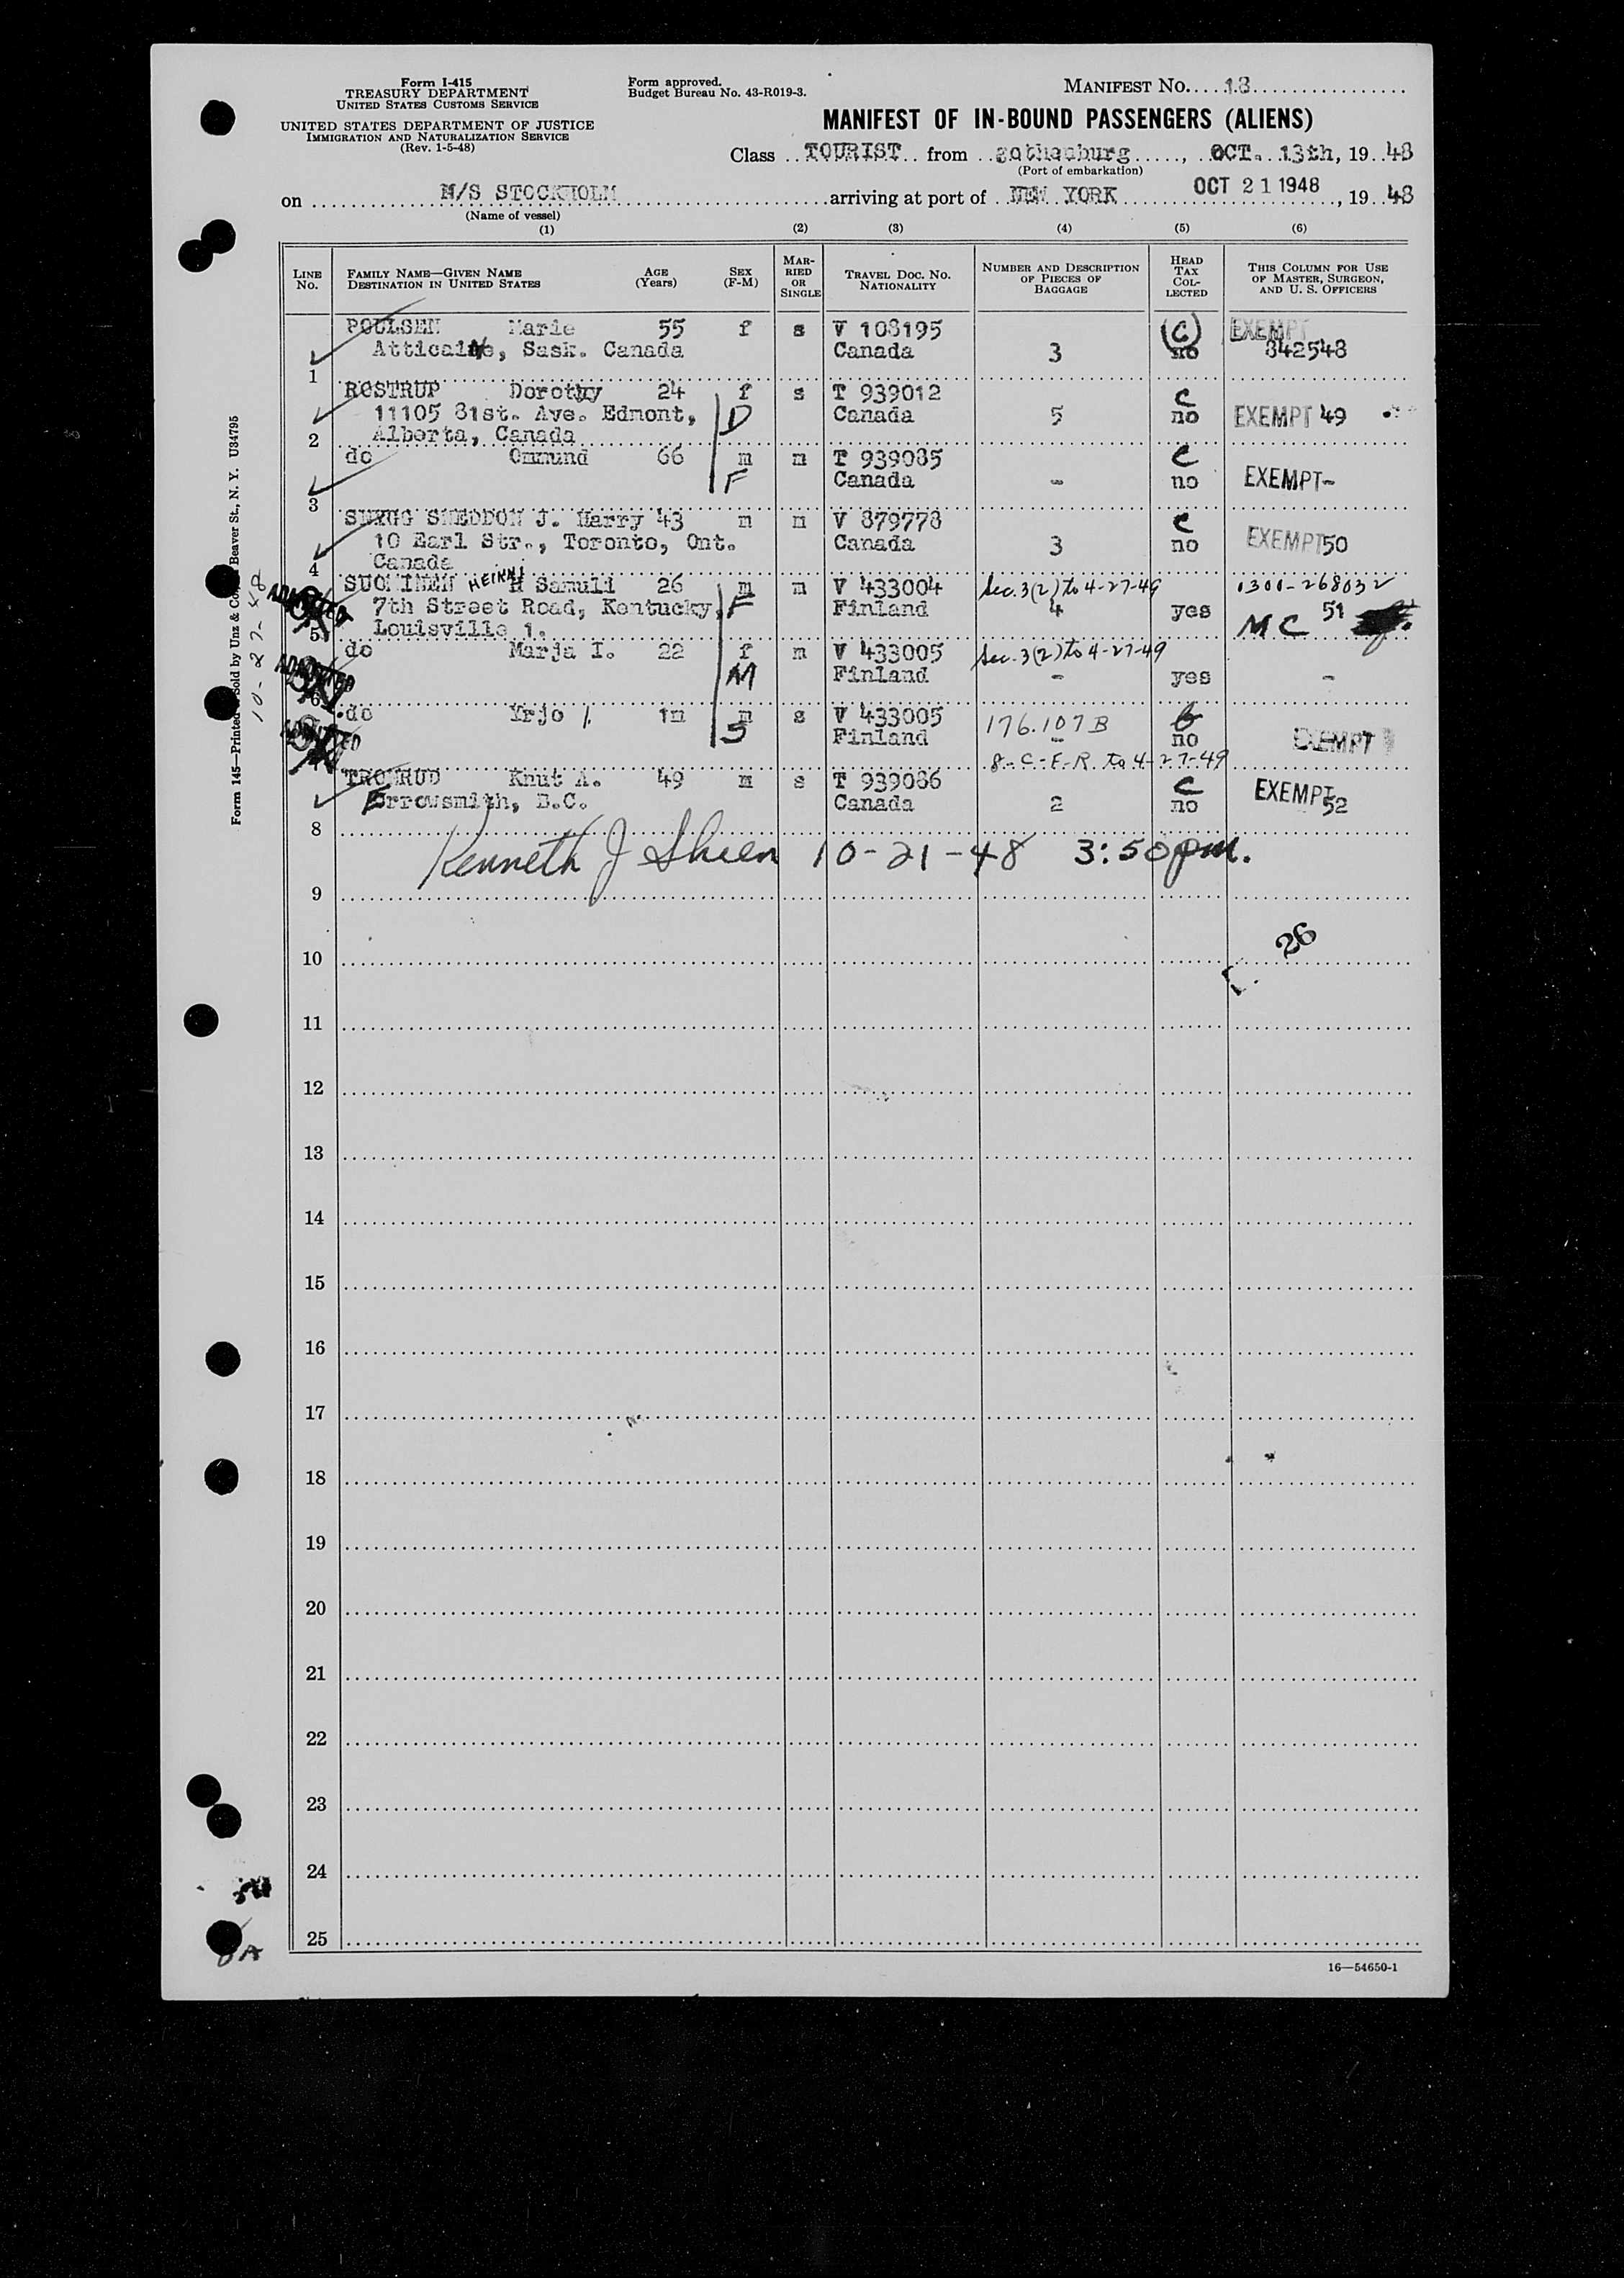 Form I-415
TREASURY DEPARTMENT
UNITED STATES CUSTOMS SERVICE
UNITED STATES DEPARTMENT OF JUSTICE
IMMIGRATION AND NATURALIZATION SERVICE
(Rev. 1-5-48)
Form approved.
Budget Bureau No. 43-R019-3.
MANIFEST No. 18
MANIFEST OF IN-BOUND PASSENGERS (ALIENS)
Class TOURIST from gothenburg, OCT. 13th, 19 48
(Port of embarkation)
on M/S STOCKHOLM arriving at port of NEW YORK OCT 21 1948, 19 48
(Name of vessel)
(1) (2) (3) (4) (5) (6)
LINE No. FAMILY NAME—GIVEN NAME DESTINATION IN UNITED STATES AGE (Years) SEX (F-M) MARRIED OR SINGLE TRAVEL DOC. NO. NATIONALITY NUMBER AND DESCRIPTION OF PIECES OF BAGGAGE HEAD TAX COLLECTED THIS COLUMN FOR USE OF MASTER, SURGEON, AND U. S. OFFICERS
POULSEN Marie 55 f s V 108195 C EXEMPT
Sask. Canada Canada 3 no 842548
1
ROSTRUP Dorothy 24 f s T 939012 C
11105 81st. Ave. Edmont, D Canada 5 no EXEMPT 49
2 Alberta, Canada
do Ommund 66 m m T 939085 C
F Canada - no EXEMPT-
3
SNEDDON J. Harry 43 m m V 879778 C
10 Earl Str., Toronto, Ont. Canada 3 no EXEMPT 50
4 Canada
SUOMINEN HEIKKI H Samuli 26 m m V 433004 Sec. 3(2) to 4-27-49 1300-268032
ADMITTED 7th Street Road, Kentucky, F Finland 4 yes MC 51
5 Louisville 1.
do Marja I. 22 f m V 433005 Sec. 3(2) to 4-27-49
ADMITTED M Finland - yes -
6
do Yrjo 1m m s V 433005 176.107 B
ADMITTED S Finland - no EXEMPT
8-C-F-R to 4-27-49
TROMRUD Knut A. 49 m s T 939086 C
Errowsmith, B.C. Canada 2 no EXEMPT 52
8
Kenneth J Sheen 10-21-48 3:50 pm.
9
26
10
11
12
13
14
15
16
17
18
19
20
21
22
23
24
25
16—54650-1
Form 145—Printed Sold by Unz & Co. Beaver St., N. Y. U34795
10-27-48